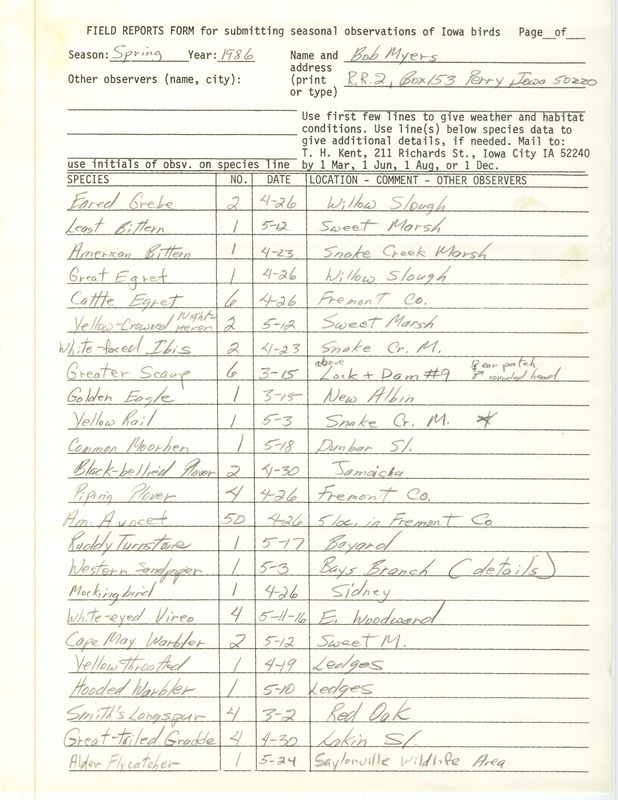 FIELD REPORTS FORM for submitting seasonal observations of Iowa birds Page__of__
Season: Spring Year: 1986 Name and Bob Myers
address
Other observers (name, city): (print R.R.2, Box 153 Perry, Iowa 50220
or type)
Use first few lines to give weather and habitat
conditions. Use line(s) below species data to
give additional details, if needed. Mail to:
T. H. Kent, 211 Richards St., Iowa City IA 52240
use initials of obsv. on species line by 1 Mar, 1 Jun, 1 Aug, or 1 Dec.
SPECIES NO. DATE LOCATION - COMMENT - OTHER OBSERVERS
Eared Grebe 2 4-26 Willow Slough
Least Bittern 1 5-12 Sweet Marsh
American Bittern 1 4-23 Snake Creek Marsh
Great Egret 1 4-26 Willow Slough
Cattle Egret 6 4-26 Fremont Co.
Yellow-Crowned Night-Heron 2 5-12 Sweet Marsh
White-faced Ibis 2 4-23 Snake Cr. M.
Greater Scaup 6 3-15 above Lock + Dam #9 ♀ ear patch ♂ rounded head
Golden Eagle 1 3-15 New Albin
Yellow Rail 1 5-3 Snake Cr. M. *
Common Moorhen 1 5-18 Dunbar Sl.
Black-bellied Plover 2 4-30 Jamaicia
Piping Plover 4 4-26 Fremont Co.
Am. Avocet 50 4-26 5 loc. in Fremont Co
Ruddy Turnstone 1 5-17 Bayard
Western Sandpiper 1 5-3 Bays Branch (details)
Mockingbird 1 4-26 Sidney
White-eyed Vireo 4 5-11-16 E. Woodward
Cape May Warbler 2 5-12 Sweet M.
Yellow Throated 1 4-19 Ledges
Hooded Warbler 1 5-10 Ledges
Smith's Longspur 4 3-2 Red Oak
Great-tailed Grackle 4 4-30 Lakin Sl.
Alder Flycatcher 1 5-24 Saylorville Wildlife Area